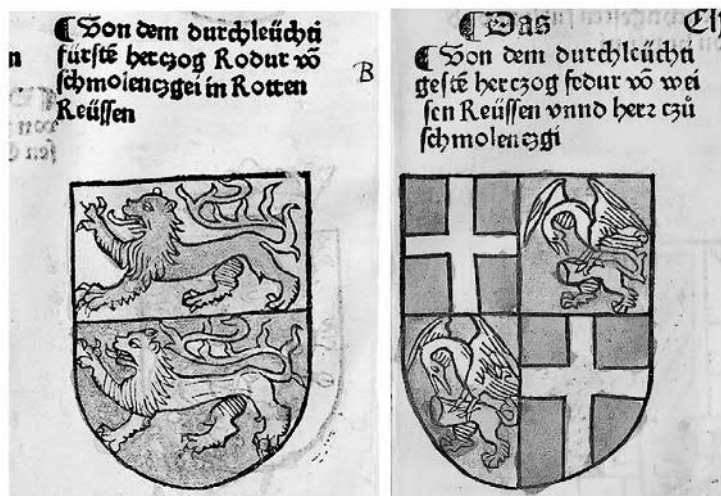 ¶ Von dem durchleüchti
fürstē herczog Rodur vō
schmolenczgei in Rotten
Reüssen
B
n
¶ Das
¶ Von dem durchleüchti
gestē herczog fedur vō wei
sen Reüssen vnnd herr czů
schmolenczgi